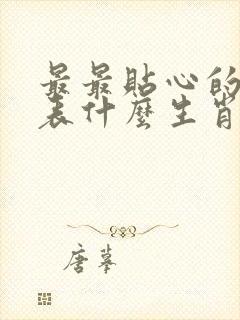 最最貼心的
表什麼生肖
唐摹